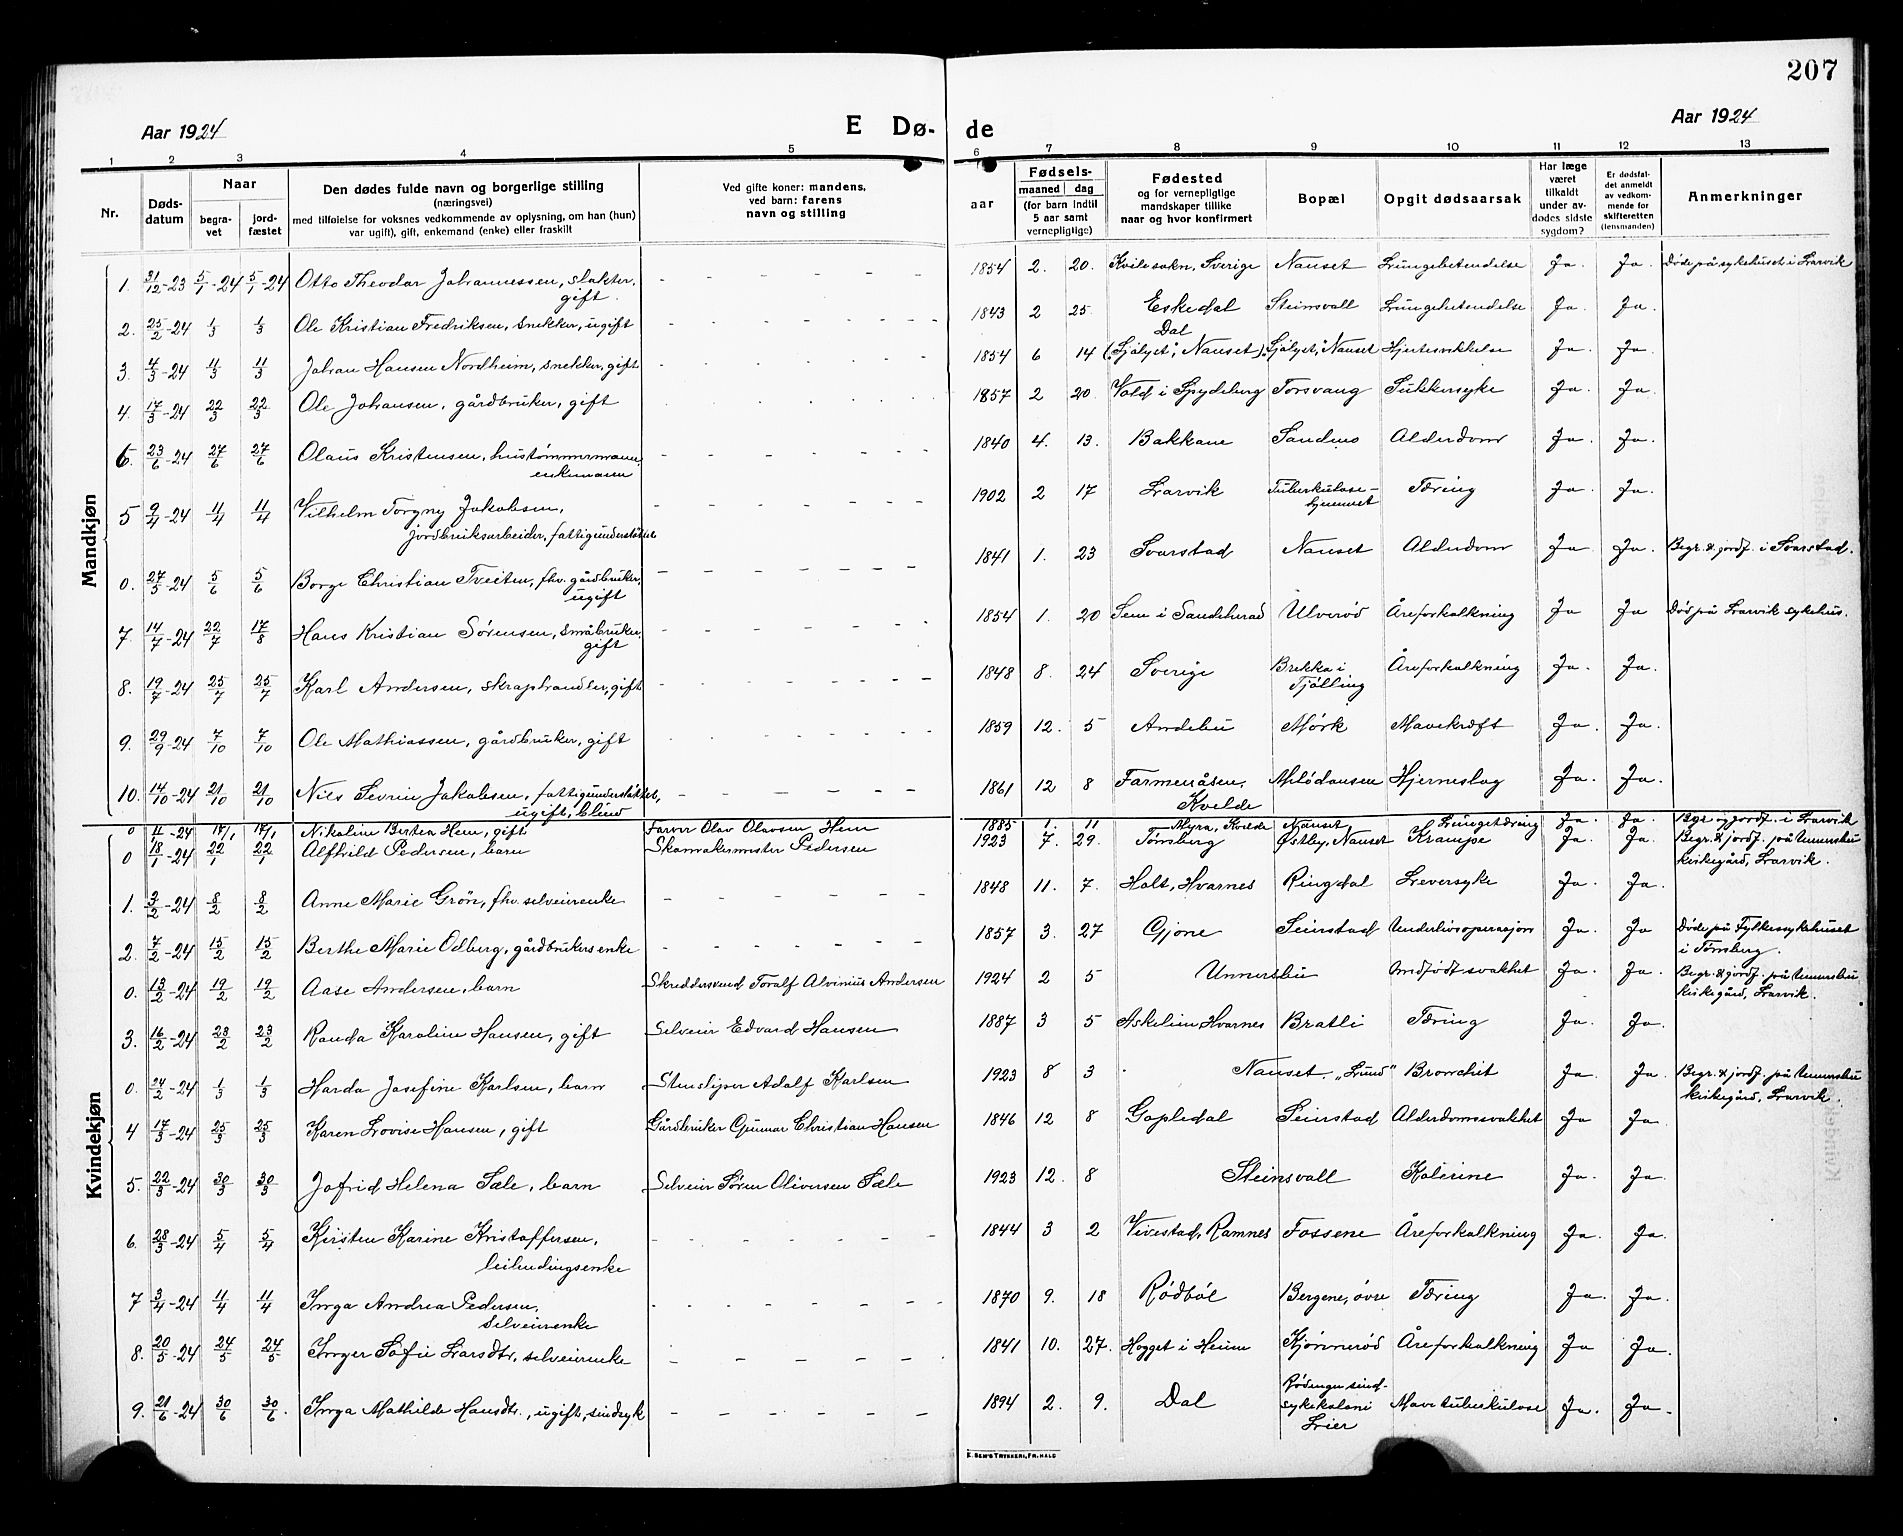 207
Aar 1924
E Dø- de
Aar 1924
1 2 3 4 5 6 7 8 9 10 11 12 13
Nr.
Døds-datum
Naar
begra-vet
jord-fæstet
Den dødes fulde navn og borgerlige stilling
(næringsvei)
med tilføielse for voksnes vedkommende av oplysning, om han (hun)
var ugift), gift, enkemand (enke) eller fraskilt
Ved gifte koner: mandens,
ved barn: farens
navn og stilling
Fødsels-
aar
maaned
dag
(for barn indtil
5 aar samt
vernepligtige)
Fødested
og for vernepligtige
mandskaper tillike
naar og hvor konfirmert
Bopæl
Opgit dødsaarsak
Har læge
været
tilkaldt
under av-
dødes sidste
sygdom?
Er dødsfal-
det anmeldt
av vedkom-
mende for
skifteretten
(lensmanden)
Anmerkninger
Mandkjøn
1. 31/12-23 5/1-24 5/1-24 Otto Theodor Johannessen, slakter, gift. 1854 2. 20. Kvilesokn, Sverige Nanset Lungebetendelse Ja. Ja. Døde på sykehuset i Larvik
2. 25/2-24 1/3 1/3 Ole Kristian Fredriksen, snekker, ugift 1843 2 25. Eskedal Steinsvall Lungebetendelse Ja. Ja.
3. 4/3-24 11/3 11/3 Johan Hansen Nordheim, snekker, gift 1854 6 14 Dal ("Sjølyst", Nanset) Sjølyst, Nanset Hjertesvikkelse Ja. Ja.
4. 17/3-24 22/3 22/3 Ole Johansen, gårdbruker, gift 1857 2 20 Vold i Spydeberg Torsvang Sukkersyke Ja. Ja.
6. 23/6-24 27/6 27/6 Olaus Kristensen, hustømmermann, enkemann 1840 4. 13. Bakkane Sandnes Alderdom Ja. Ja.
5 9/4-24 11/4 11/4 Vilhelm Torgny Jakobsen, jordbruksarbeider, fattigunderstøttet 1902 2 17 Larvik Tuberkulose-hjemmet Tæring Ja. Ja.
0. 27/5-24 5/6 5/6 Borge Christian Tveiten, fhv. gårdbruker, ugift 1841 1. 23 Svarstad Nanset Alderdom Ja Ja. Begr. & jordf. i Svarstad.
7. 14/7-24 22/7 17/8 Hans Kristian Sørensen, småbruker, gift 1854 1. 20 Sem i Sandeherad Ulverød Åreforkalkning Ja Ja Død på Larvik sykehus.
8. 19/7-24 25/7 25/7 Karl Andersen, skraphandler, gift 1848 8. 24 Sverige Brekka i Tjølling Åreforkalkning Ja. Ja.
9. 29/9-24 7/10 7/10 Ole Mathiassen, gårdbruker, gift 1859 12. 5 Andebu Mørk Mavekræft Ja. Ja.
10. 14/10-24 21/10 21/10 Nils Severin Jakobsen, fattigunderstøttet, ugift, blind 1861 12 8 Farmenåsen, Kvelde Hjerneslag Ja. Ja.
Kvindekjøn
0 11/1-24 17/1 17/1 Nikoline Bertea Hem, gift Farver Olav Olavsen Hem 1885 1. 11 Myra, Kvelde Nanset Lungetæring Ja. Ja. Begr. og jordf. i Larvik
0 18/1-24 22/1 22/1 Alfhild Pedersen, barn Skomakermester Pedersen 1923 7. 29. Tønsberg Østby, Nanset Krampe Ja. Ja. Begr. & jordf. på Unnersbu kirkegård, Larvik.
1. 3/2-24 8/2 8/2 Anne Marie Grøn, fhv. selveierenke 1848 11. 7. Holt, Hvarnes Ringdal Leversyke Ja. Ja.
2. 7/2-24 15/2 15/2 Berthe Marie Odberg, gårdbrukersenke 1857 3. 27 Gjone Seierstad Underlivsoperasjon Ja. Ja Døde på Fylkessykehuset i Tønsberg.
0. 13/2-24 19/2 19/2 Aase Andersen, barn Skreddersvend Toralf Alvinius Andersen 1924 2 5 Unnersbu Medfødt svakhet Ja. Ja. Begr. & jordf. på Unnersbu kirkegård, Larvik.
3. 16/2-24 23/2 23/2 Randa Karoline Hansen, gift Selveier Edvard Hansen 1887 3 5 Askelien, Hvarnes Bratli Tæring Ja. Ja.
0. 24/2-24 1/3 1/3 Harda Josefine Karlsen, barn Stensliper Adolf Karlsen 1923 8 3 Nanset, "Lund" Bronchit Ja. Ja. Begr. & jordf. på Unnersbu kirkegård, Larvik.
4 17/3-24 25/3 25/3 Karen Lovise Hansen, gift Gårdbruker Gunnar Christian Hansen 1846 12 8 Gopledal Seierstad Alderdomssvakhet Ja Ja
5. 22/3-24 30/3 30/3 Jofrid Helena Sæle, barn Selveier Søren Oliversen Sæle 1923 12. 8 Steinsvall Kolerine Ja. Ja.
6. 28/3-24 5/4 5/4 Kirsten Karine Kristoffersen, leilendingsenke 1844 3 2 Vivestad, Ramnes Fossene Åreforkalkning Ja. Ja.
7 3/4-24 11/4 11/4 Inga Andrea Pedersen, selveierenke 1870 9. 18 Rødbøl Bergene, øvre Tæring Ja. Ja.
8. 20/5-24 24/5 24/5 Inger Sofie Larsdtr, selveierenke 1841 10. 27. Hogget i Heium Kjønnerød Åreforkalkning Ja Ja.
9. 21/6-24 30/6 30/6. Inga Mathilde Hansdtr., ugift, sindsyk 1894 2. 9. Dal sindsykekoloni Lier Mavetuberkulose Ja. Ja.
E. SEM'S TRYKKERI, FR.HALD